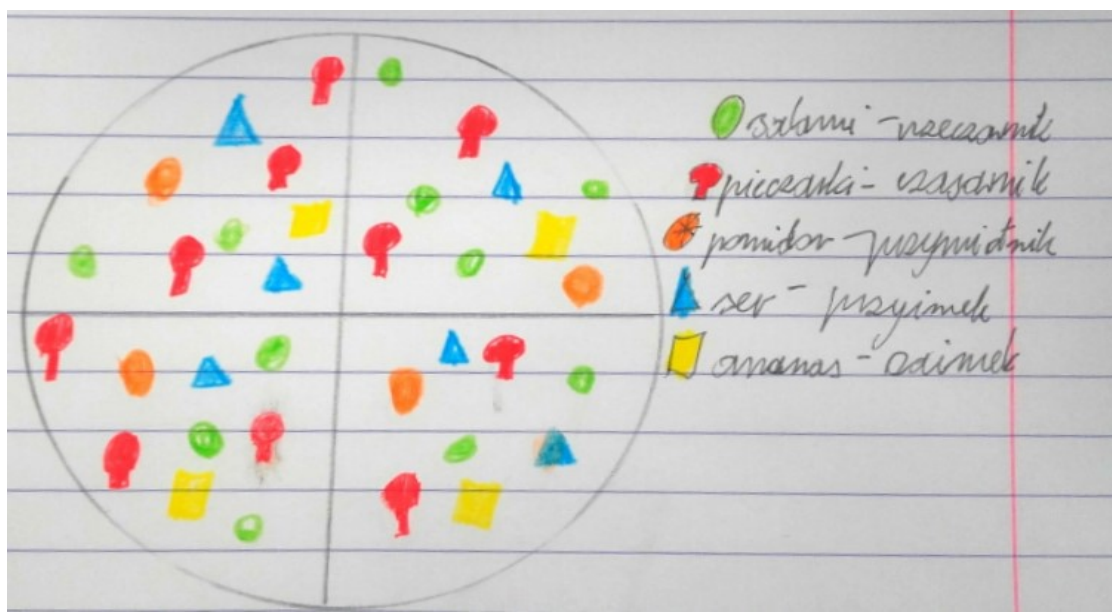 salami - rzeczownik
pieczarki - czasownik
pomidor - przymiotnik
ser - przyimek
ananas - zaimek